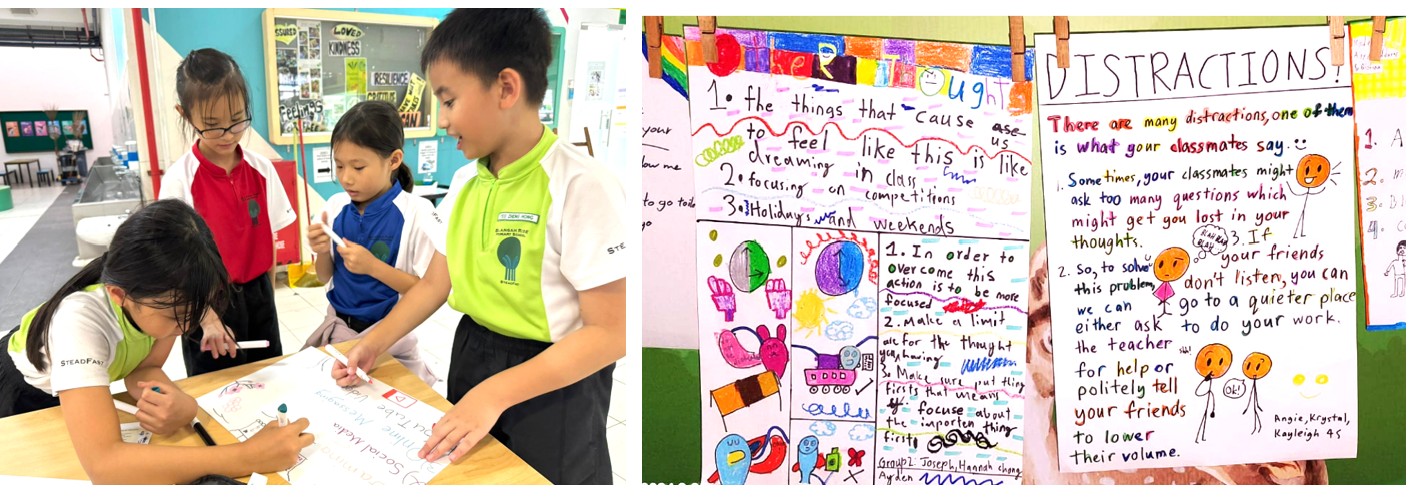 LOVED
KINDNESS
RESILIENCE
Feelings
CAN
STEADFAST
STEADFAST
STE
Tube
Online Messaging
Social Media
your
low me
to go
OtHeR THOughts
1. the things that cause us
to feel like this is like
dreaming in class
2. focusing on competitions
3. Holidays and weekends
1. In order to
overcome this
action is to be more
focused
2. Make a limit
for the thought
your having
So Make sure put thing
firsts that means
focuse about
the importen thing
first
Group 2: Joseph, Hannah chong
Ayden
DISTRACTIONS!
There are many distractions, one of them
is what your classmates say.
1. Sometimes, your classmates might
ask too many questions which
might get you lost in your
thoughts.
BLAH BLAH BLAH
2. So, to solve
this problem,
we can
either ask
the teacher
for help or
politely tell
your friends
to lower
their volume.
3. If
your friends
don't listen, you can
go to a quieter place
to do your work.
Shh!
Ok!
Angie, Krystal,
Kayleigh 4S
1. A
2.
3.
4.